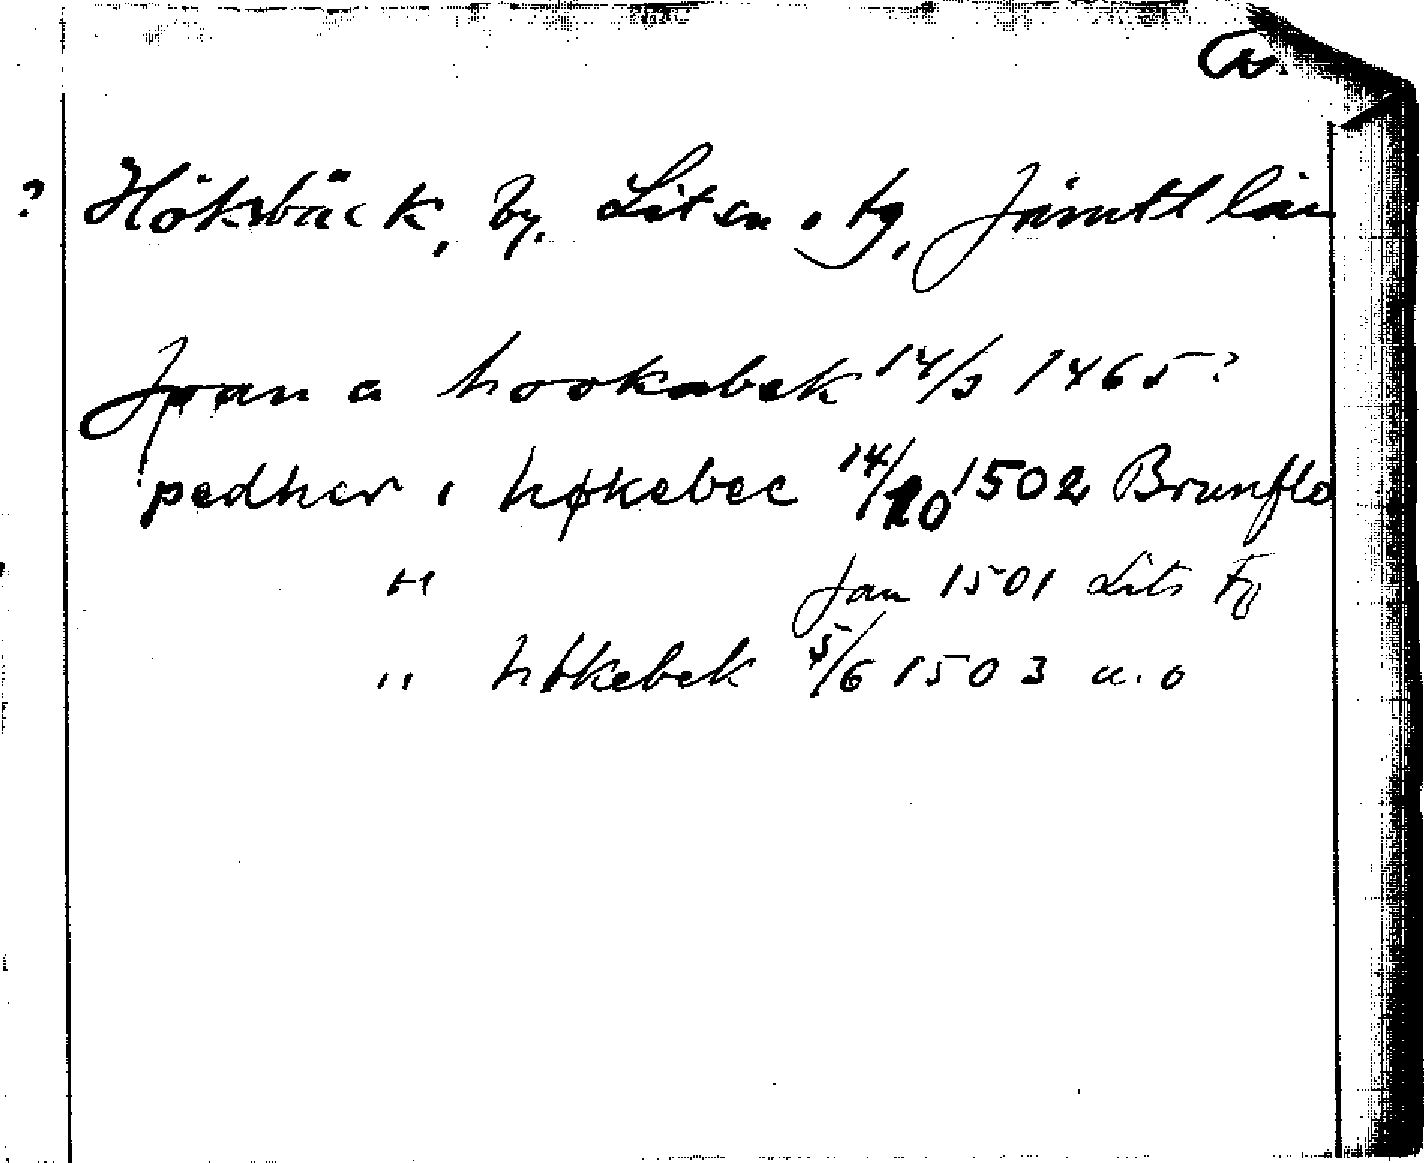 ? Hökbäck, by, Lits sn o tg, Jämtl län
Joan a hookabek 14/3 1465?
pedher i høkebec 14/10 1502 Brunflo
" Jan 1501 Lits Fg
" hökebek 5/6 1503 a.o